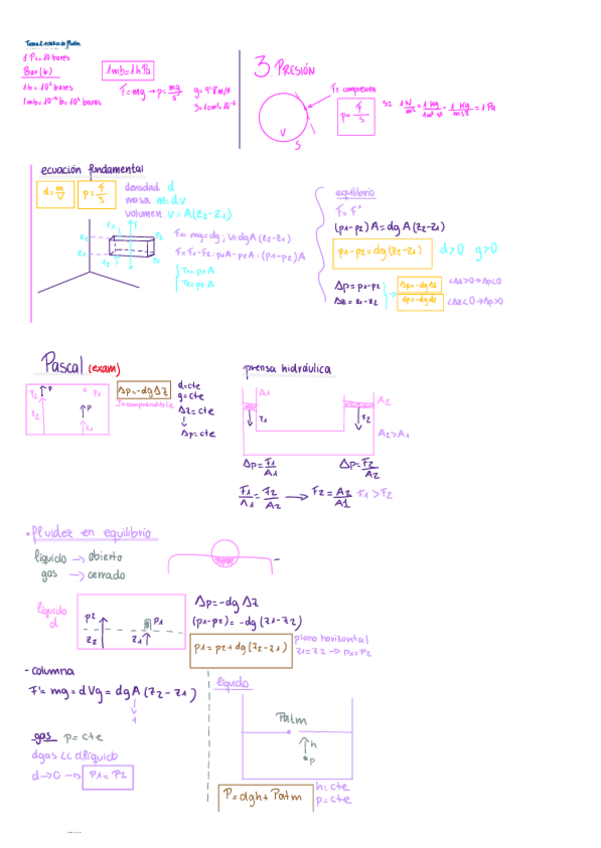 Tema 2: estática de fluidos
1 Pa = 10 bares
Bar (b)
1mb = 1hPa
1b = 10⁵ bares
F = mg → p = mg/s
g = 9'8 m/s
3 PRESIÓN
Fc compresora
p = F/S
V
S
1N/m² = 1 kg/m² s² = 1 Kg/ms² = 1 Pa
ecuación fundamental
d = m/V
p = F/S
densidad d
masa m = dV
volumen V = A(z₂-z₁)
F = F₁-F₂ = p₁A-p₂A = (p₁-p₂)A
equilibrio
F = F'
(p₁-p₂)A = dgA(z₂-z₁)
p₁-p₂ = dg(z₂-z₁)
d>0 g>0
Δp = p₁-p₂
Δp = -dgΔz
dp = -dgdz
<Δz>0→Δp<0
<Δz<0→Δp>0
Pascal (exam)
Δp = -dgΔz
Incomprendible
d = cte
g = cte
Δz = cte
↓
Δp = cte
prensa hidráulica
A₁
A₂
F₁
F₂
A₂>A₁
Δp = F₁/A₁
Δp = F₂/A₂
F₁/A₁ = F₂/A₂ → F₂ = A₂/A₁ F₁ > F₂
• fluidez en equilibrio
líquido → abierto
gas → cerrado
líquido
d
p₂
z₂
z₁
p₁
Δp = -dgΔz
(p₁-p₂) = -dg(z₁-z₂)
p₁ = p₂ + dg(z₂-z₁)
plano horizontal
z₁ = z₂ → p₁ = p₂
- columna
F = mg = dVg = dgA(z₂-z₁)
1
gas p = cte
dgas << dlíquido
d→0 → p₁ = p₂
líquido
Patm
h
p
P = dgh + Patm
h = cte
p = cte